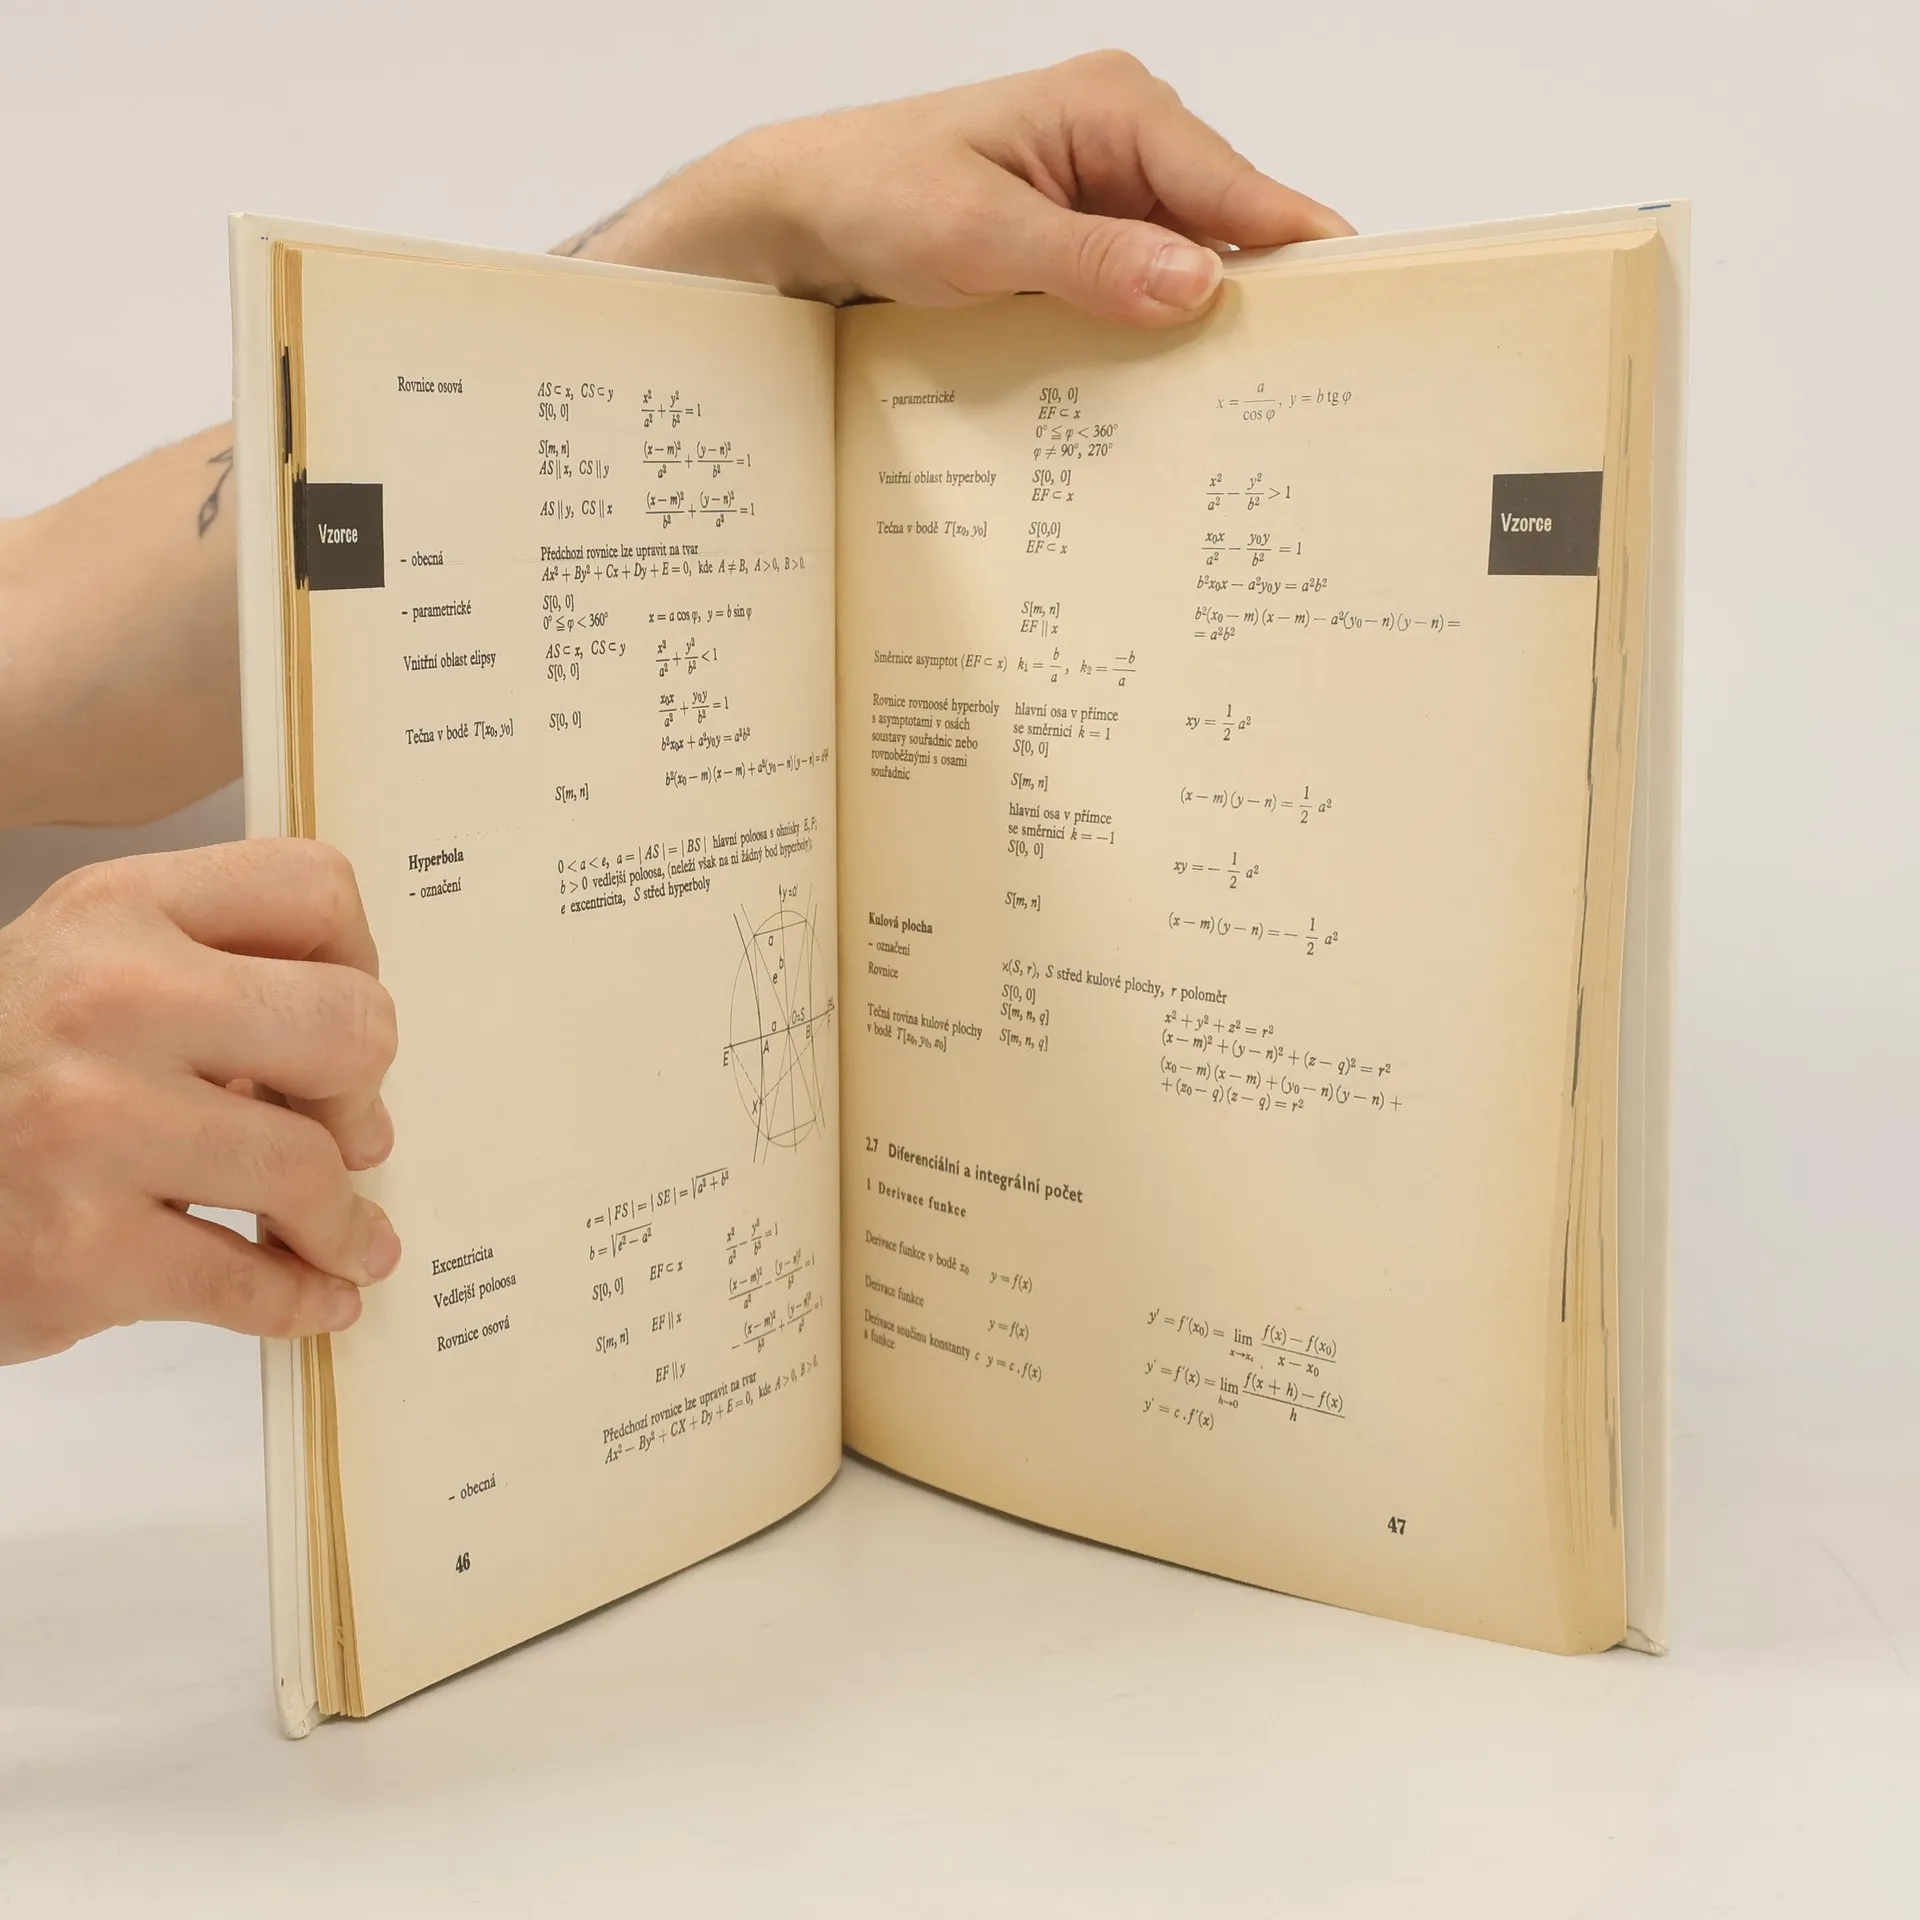 Vzorce
Rovnice osová AS ⊂ x, CS ⊂ y x²/a² + y²/b² = 1
S[0, 0]
S[m, n] (x − m)²/a² + (y − n)²/b² = 1
AS || x, CS || y
AS || y, CS || x (x − m)²/b² + (y − n)²/a² = 1
– obecná Předchozí rovnice lze upravit na tvar
Ax² + By² + Cx + Dy + E = 0, kde A ≠ B, A > 0, B > 0.
– parametrické S[0, 0]
0° ≦ φ < 360° x = a cos φ, y = b sin φ
Vnitřní oblast elipsy AS ⊂ x, CS ⊂ y x²/a² + y²/b² < 1
S[0, 0]
Tečna v bodě T[x₀, y₀] S[0, 0] x₀x/a² + y₀y/b² = 1
b²x₀x + a²y₀y = a²b²
S[m, n] b²(x₀ − m)(x − m) + a²(y₀ − n)(y − n) = a²b²
Hyperbola
– označení
0 < a < e, a = | AS | = | BS | hlavní poloosa s ohnisky E, F;
b > 0 vedlejší poloosa, (neleží však na ní žádný bod hyperboly);
e excentricita, S střed hyperboly
y=o'
a
b
e
a O=S
E A B F
X
Excentricita e = | FS | = | SE | = √(a² + b²)
Vedlejší poloosa b = √(e² − a²)
Rovnice osová S[0, 0] EF ⊂ x x²/a² − y²/b² = 1
S[m, n] EF || x (x − m)²/a² − (y − n)²/b² = 1
EF || y − (x − m)²/b² + (y − n)²/a² = 1
– obecná Předchozí rovnice lze upravit na tvar
Ax² − By² + CX + Dy + E = 0, kde A > 0, B > 0.
46
Vzorce
– parametrické S[0, 0] x = a/cos φ, y = b tg φ
EF ⊂ x
0° ≦ φ < 360°
φ ≠ 90°, 270°
Vnitřní oblast hyperboly S[0, 0] x²/a² − y²/b² > 1
EF ⊂ x
Tečna v bodě T[x₀, y₀] S[0,0] x₀x/a² − y₀y/b² = 1
EF ⊂ x
b²x₀x − a²y₀y = a²b²
S[m, n] b²(x₀ − m)(x − m) − a²(y₀ − n)(y − n) =
EF || x = a²b²
Směrnice asymptot (EF ⊂ x) k₁ = b/a, k₂ = −b/a
Rovnice rovnoosé hyperboly hlavní osa v přímce
s asymptotami v osách se směrnicí k = 1 xy = 1/2 a²
soustavy souřadnic nebo S[0, 0]
rovnoběžnými s osami
souřadnic S[m, n] (x − m)(y − n) = 1/2 a²
hlavní osa v přímce
se směrnicí k = −1
S[0, 0] xy = − 1/2 a²
S[m, n] (x − m)(y − n) = − 1/2 a²
Kulová plocha
– označení ϰ(S, r), S střed kulové plochy, r poloměr
Rovnice S[0, 0] x² + y² + z² = r²
S[m, n, q] (x − m)² + (y − n)² + (z − q)² = r²
Tečná rovina kulové plochy S[m, n, q] (x₀ − m)(x − m) + (y₀ − n)(y − n) +
v bodě T[x₀, y₀, z₀] + (z₀ − q)(z − q) = r²
2.7 Diferenciální a integrální počet
1 Derivace funkce
Derivace funkce v bodě x₀ y = f(x) y' = f'(x₀) = lim x→x₀ f(x) − f(x₀)/x − x₀
Derivace funkce y = f(x) y' = f'(x) = lim h→0 f(x + h) − f(x)/h
Derivace součinu konstanty c y = c . f(x) y' = c . f'(x)
a funkce
47